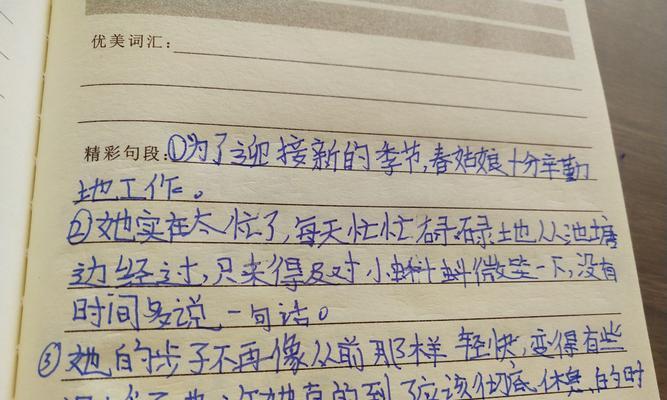 优美词汇:
精彩句段:①为了迎接新的季节,春姑娘十分辛勤
地工作。
②她实在太忙了,每天忙忙碌碌地从池塘
边经过,只来得及对小蝌蚪微笑一下,没有
时间多说一句话。
③她的步子不再像从前那样轻快,变得有些
到了应该彻底休息的时